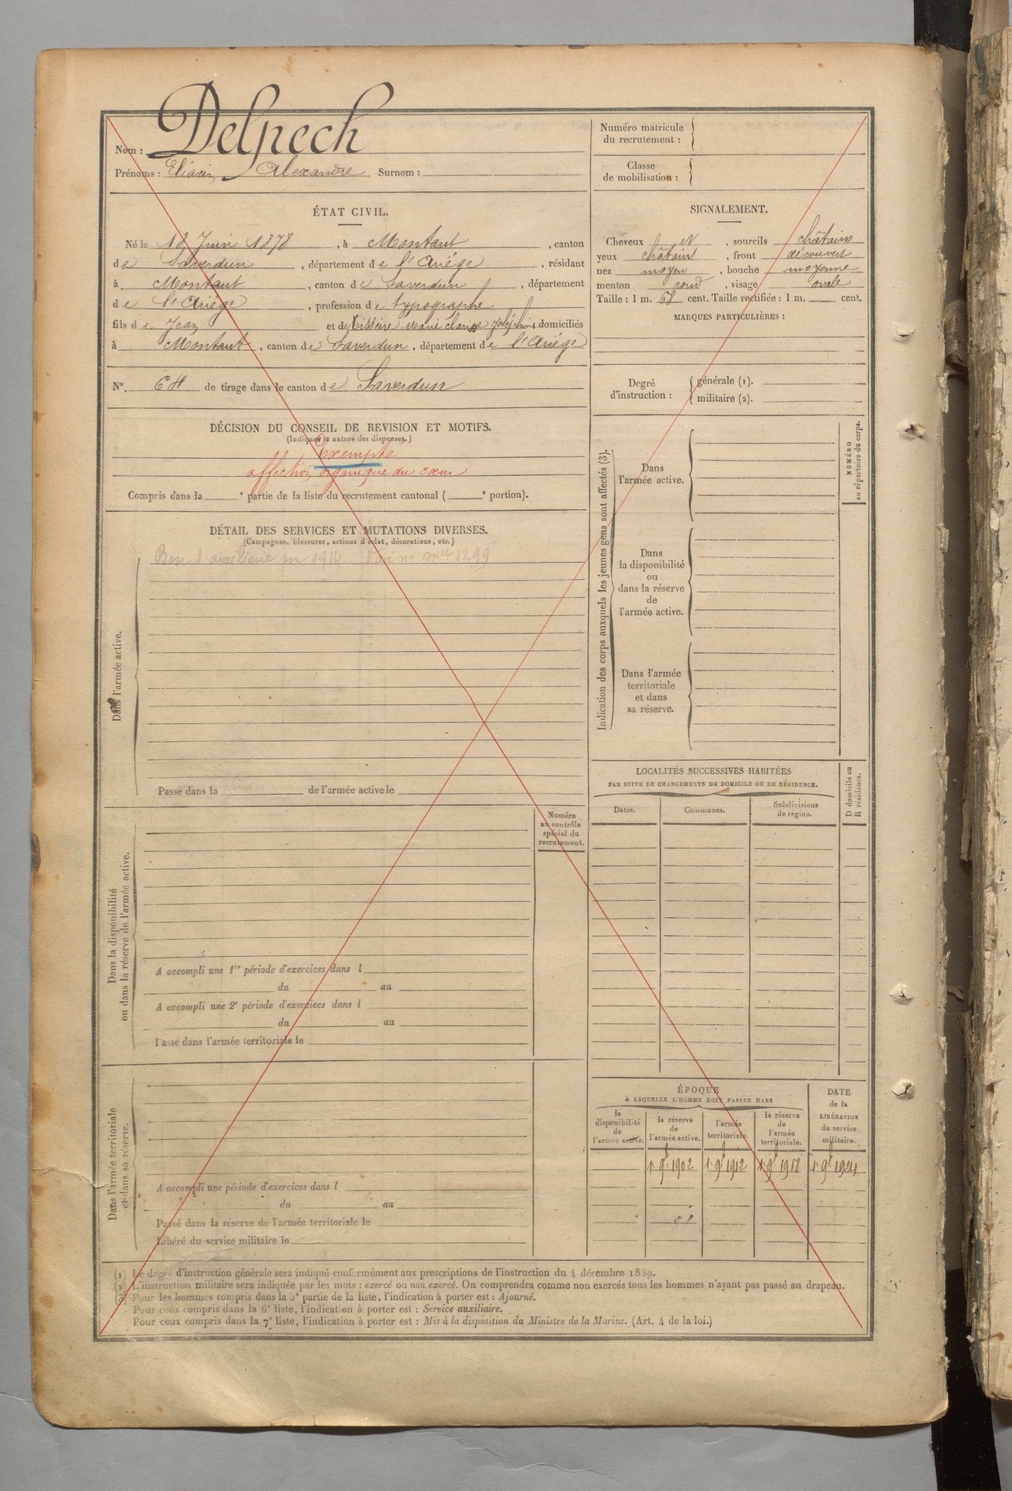 Nom : Delpech
Prénoms : Eliacin Alexandre Surnom :
ÉTAT CIVIL.
Né le 18 Juin 1878, à Montaut, canton
de Saverdun, département de l'Ariége, résidant
à Montaut, canton de Saverdun, département
de l'Ariége, profession de typographe
fils de Jean et de Marie domiciliés
à Montaut, canton de Saverdun, département de l'Ariége
N°. 64 de tirage dans le canton de Saverdun
DÉCISION DU CONSEIL DE REVISION ET MOTIFS.
(Indiquer la nature des dispenses.)
Exempté
affection organique du cœur
Compris dans la e partie de la liste du recrutement cantonal ( e portion).
DÉTAIL DES SERVICES ET MUTATIONS DIVERSES.
(Campagnes, blessures, actions d'éclat, décorations, etc.)
Bon 1299
Dans l'armée active.
Passé dans la de l'armée active le
Numéro
au contrôle
spécial du
recrutement.
Dans la disponibilité
ou dans la réserve de l'armée active.
A accompli une 1re période d'exercices dans l
du au
A accompli une 2e période d'exercices dans l
du au
Passé dans l'armée territoriale le
Dans l'armée territoriale
et dans sa réserve.
A accompli une période d'exercices dans l
du au
Passé dans la réserve de l'armée territoriale le
Libéré du service militaire le
Numéro matricule
du recrutement :
Classe
de mobilisation :
SIGNALEMENT.
Cheveux et, sourcils châtains
yeux châtains, front découvert
nez moyen, bouche moyenne
menton rond, visage ovale
Taille : 1 m. 68 cent. Taille rectifiée : 1 m. cent.
MARQUES PARTICULIÈRES :
Degré
d'instruction :
générale (1).
militaire (2).
Indication des corps auxquels les jeunes gens sont affectés (3).
Dans
l'armée active.
Dans
la disponibilité
ou
dans la réserve
de
l'armée active.
Dans l'armée
territoriale
et dans
sa réserve.
NUMÉRO
au répertoire du corps.
LOCALITÉS SUCCESSIVES HABITÉES
PAR SUITE DE CHANGEMENTS DE DOMICILE OU DE RÉSIDENCE.
Dates.
Communes.
Subdivisions
de région.
D domicile ou
R résidence.
ÉPOQUE
À LAQUELLE L'HOMME DOIT PASSER DANS
la
disponibilité
de
l'armée active.
la réserve
de
l'armée active.
l'armée
territoriale.
la réserve
de
l'armée
territoriale.
DATE
de la
LIBÉRATION
du service
militaire.
1 9bre 1902 1 9bre 1912 1 9bre 1918 1 9bre 1924
(1) Le degré d'instruction générale sera indiqué conformément aux prescriptions de l'instruction du 4 décembre 1889.
(2) L'instruction militaire sera indiquée par les mots : exercé ou non exercé. On comprendra comme non exercés tous les hommes n'ayant pas passé au drapeau.
(3) Pour les hommes compris dans la 5e partie de la liste, l'indication à porter est : Ajourné.
Pour ceux compris dans la 6e liste, l'indication à porter est : Service auxiliaire.
Pour ceux compris dans la 7e liste, l'indication à porter est : Mis à la disposition du Ministre de la Marine. (Art. 4 de la loi.)